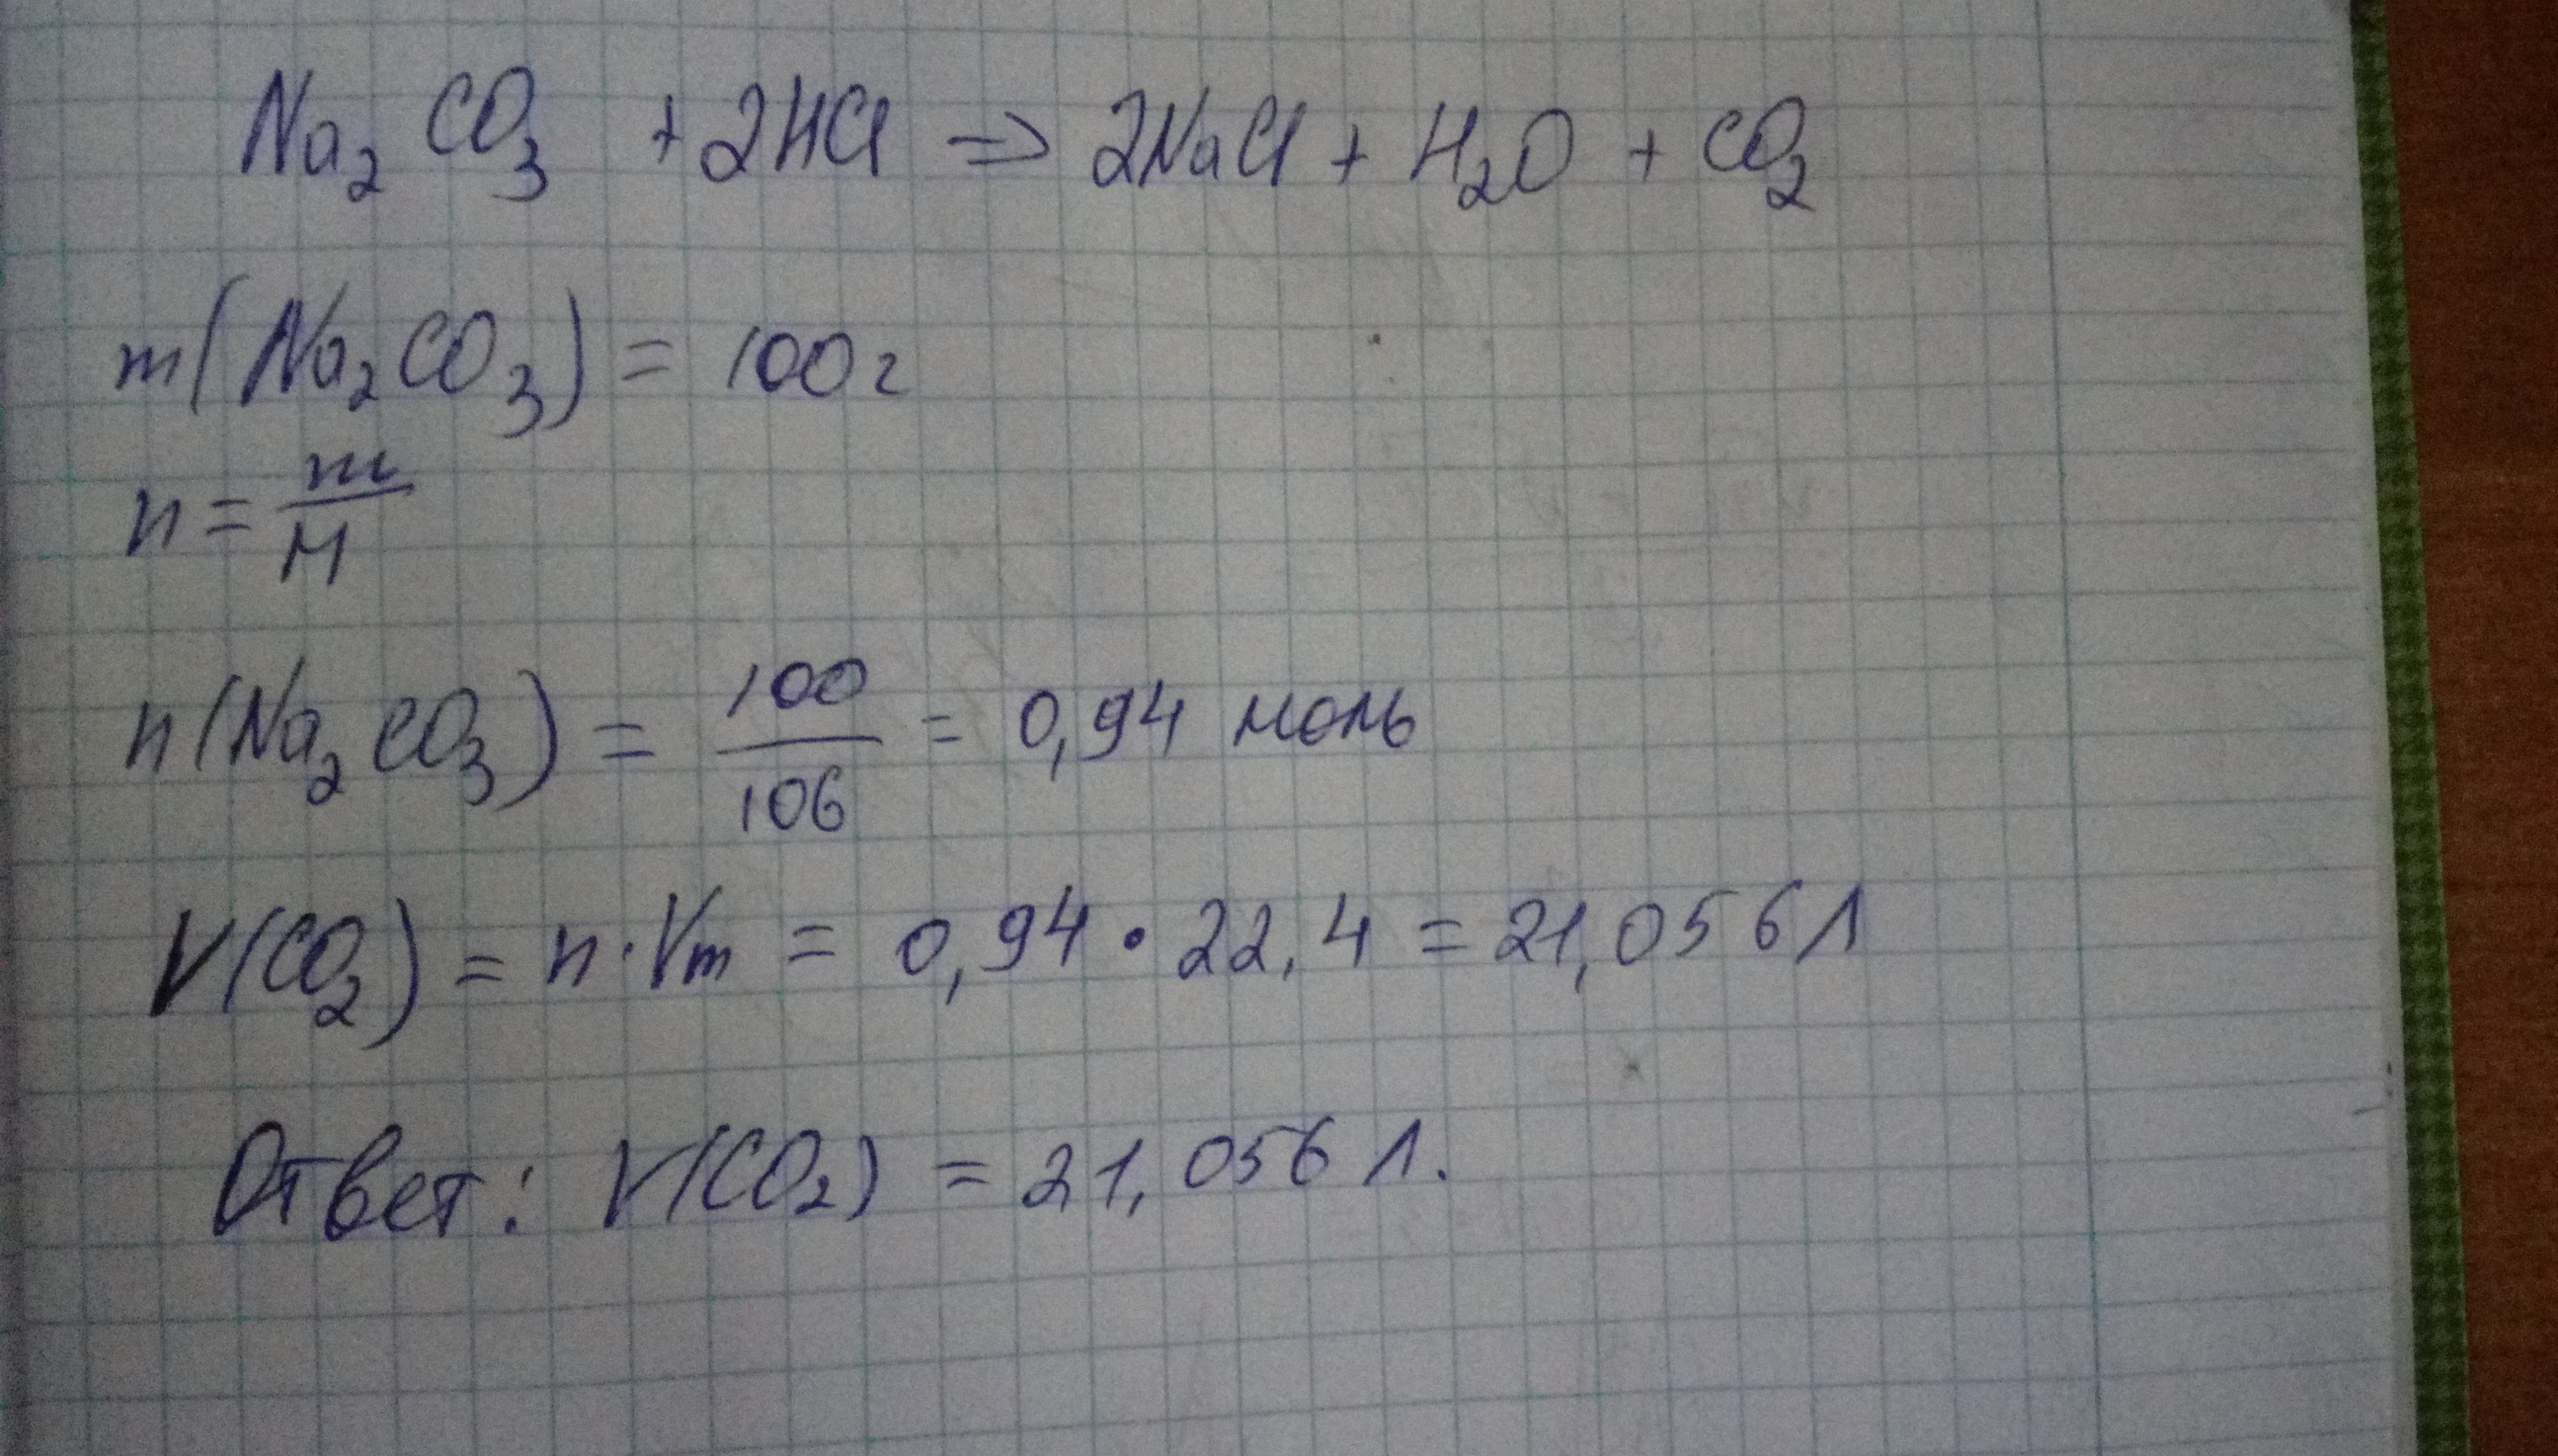 Na₂CO₃ + 2HCl => 2NaCl + H₂O + CO₂
m(Na₂CO₃) = 100г
n = m/M
n(Na₂CO₃) = 100/106 = 0,94 моль
V(CO₂) = n · Vm = 0,94 · 22,4 = 21,056 Л
Ответ: V(CO₂) = 21,056 Л.